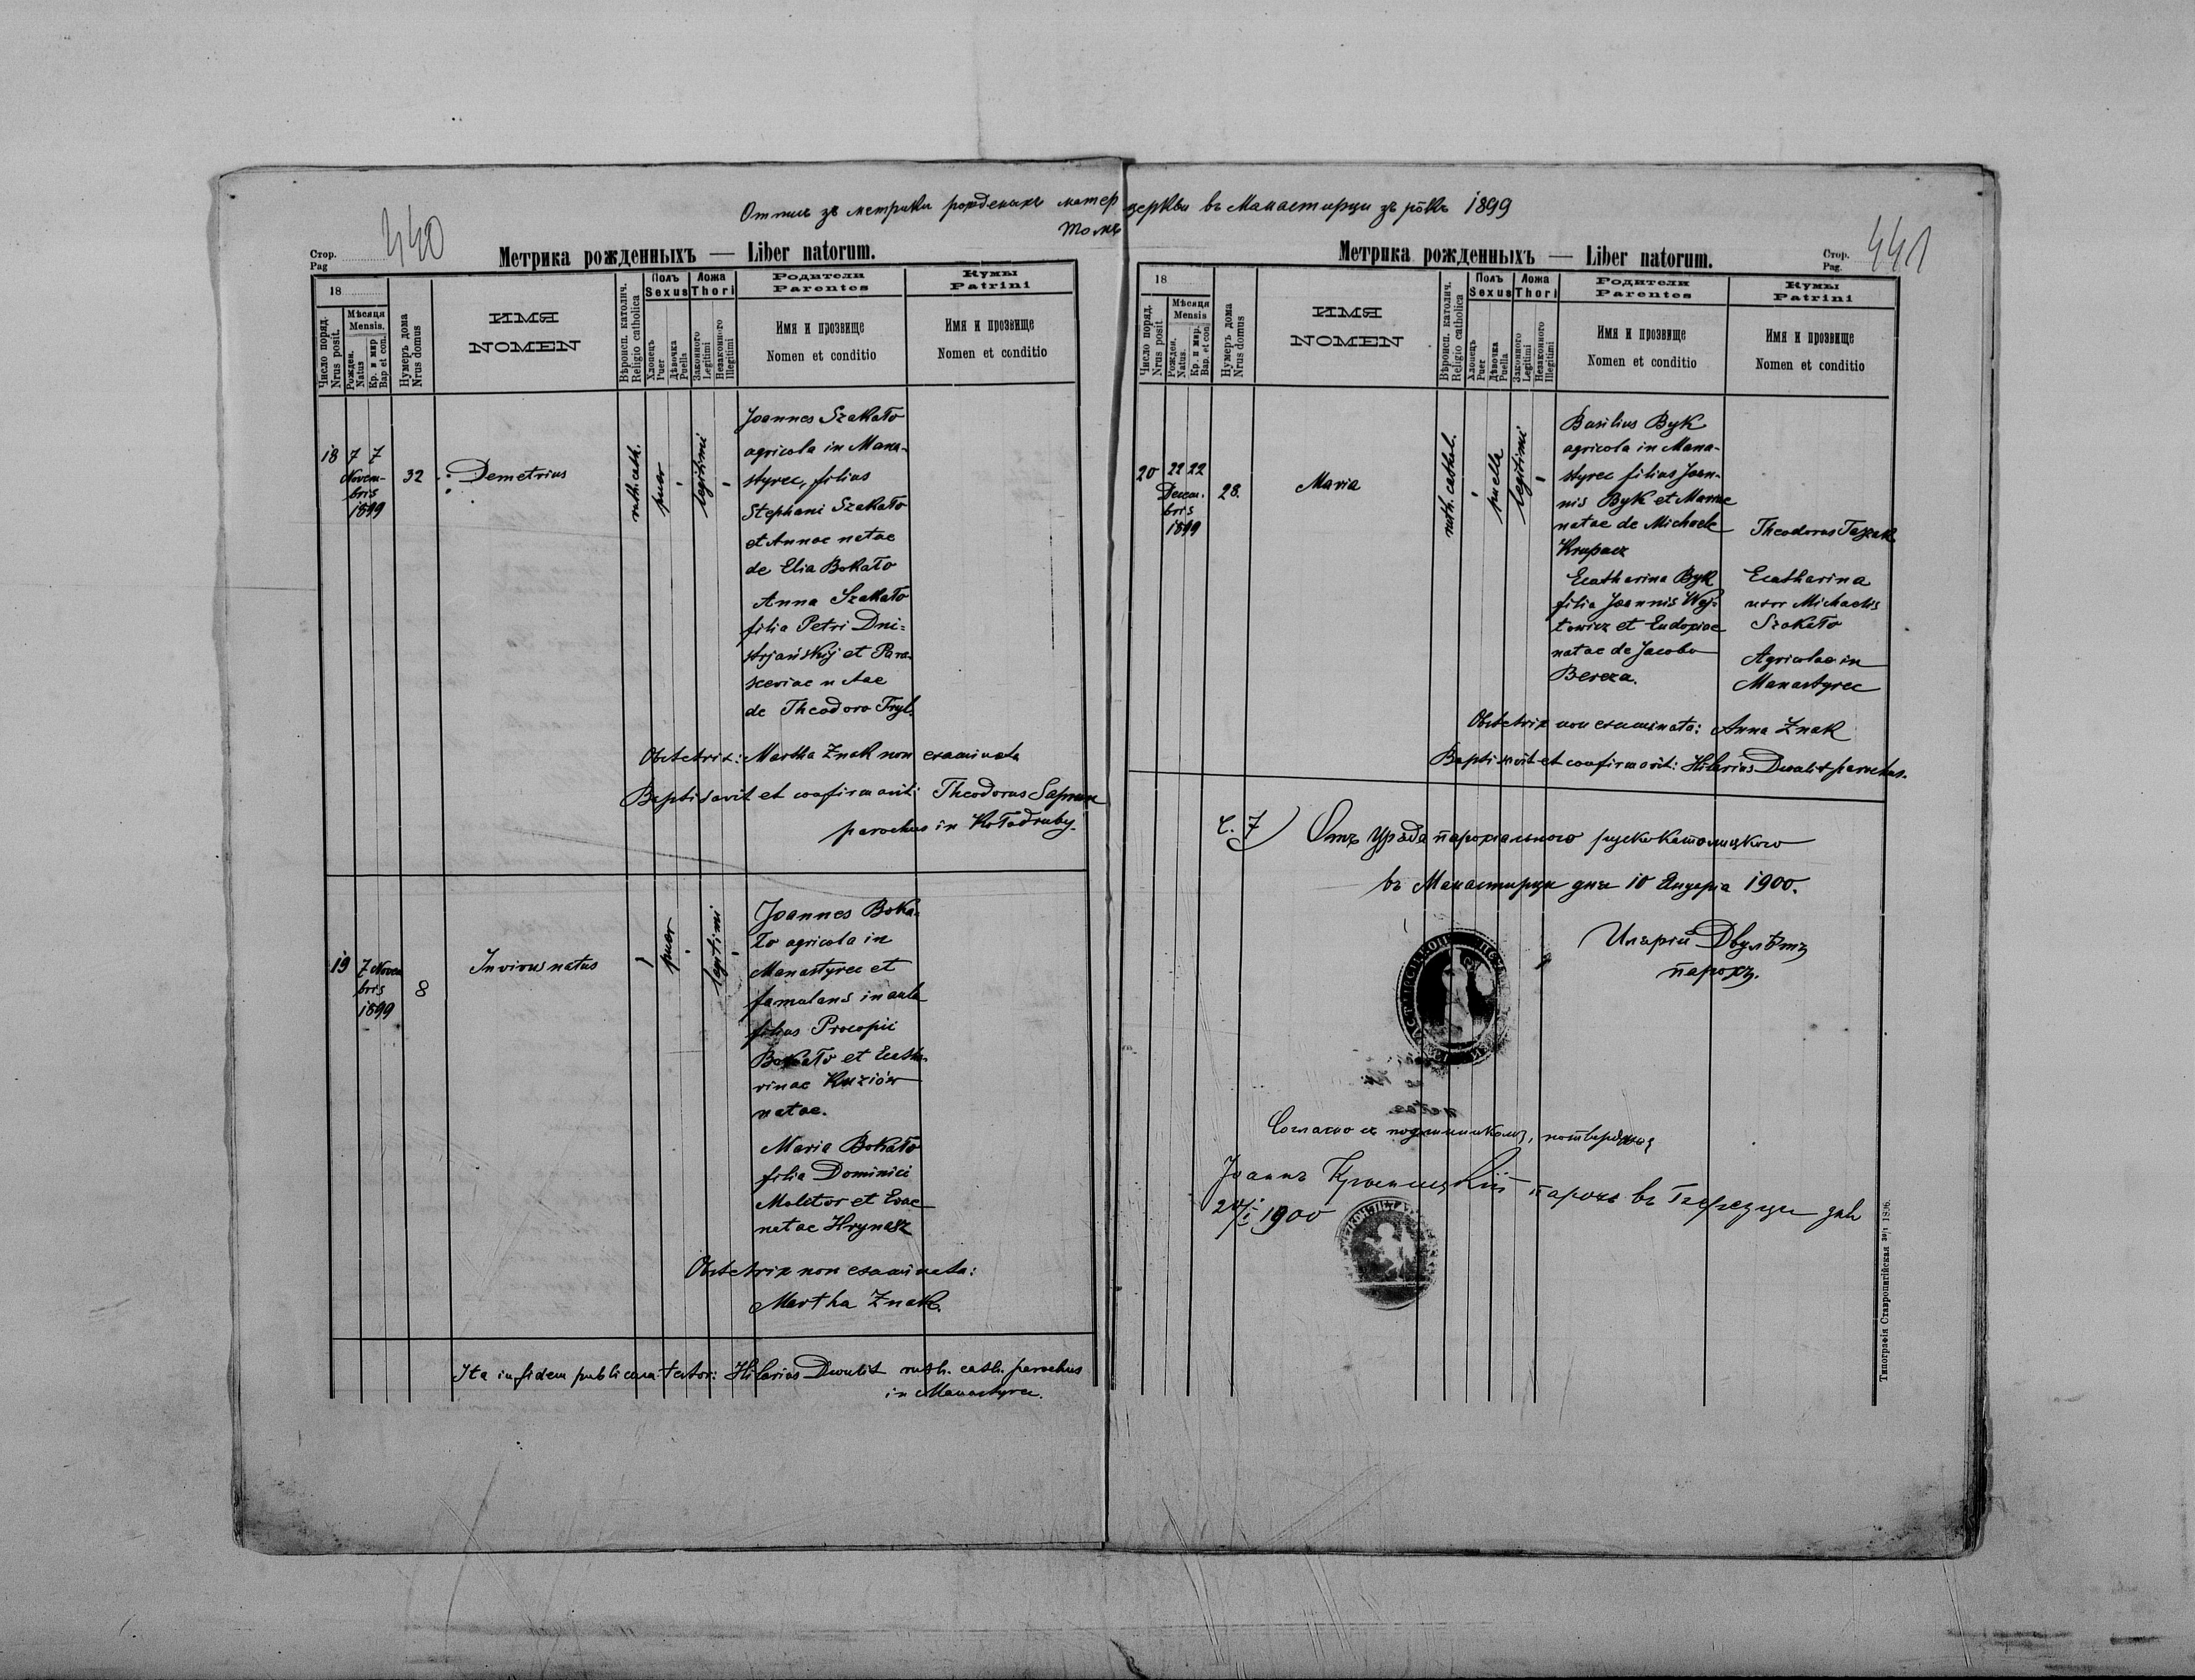 Отпись зъ метрики рожденыхъ матер церкви въ Манастирци зъ рôкъ 1899
Томъ
Стор.
Pag
440
Метрика рожденныхъ — Liber natorum.
18
Число поряд.
Nrus posit.
Мѣсяця
Mensis.
Рожден.
Natus
Кр. и мир
Bap et con.
Нумеръ дома
Nrus domus
ИМЯ
NOMEN
Вѣроисп. католич.
Religio catholica
Полъ
Sexus
Хлопецъ
Puer
Дѣвочка
Puella
Ложа
Thori
Законного
Legitimi
Незаконного
Illegitimi
Родители
Parentes
Имя и прозвище
Nomen et conditio
Кумы
Patrini
Имя и прозвище
Nomen et conditio
18 7 7
Novem-
bris
1899
32
Demetrius
ruth. cath.
puer
legitimi
Joannes Szakało
agricola in Mana-
styrec, filius
Stephani Szakało
et Annae natae
de Elia Bokało
Anna Szakało
filia Petri Dni=
strjańskij et Para-
sceviae natae
de Theodoro Fryl.
Obstetrix: Martha Znak non examinata
Baptisavit et confirmavit: Theodorus Saprun
parochus in Kołodruby.
19 7 Novem
bris
1899
8
In vivus natus
puer
legitimi
Joannes Boka-
ło agricola in
Manastyrec et
famulans in aula
filius Procopii
Bokało et Ecatha-
rinae Kuziów
natae.
Maria Bokało
filia Dominici
Molitor et Evae
natae Hrynasz
Obstetrix non examinata:
Martha Znak.
Ita in fidem publicam testor: Hilarius Dwulit ruth. cath. parochus
in Manastyrec.
Метрика рожденныхъ — Liber natorum.
Стор.
Pag.
441
18
Число поряд.
Nrus posit
Мѣсяця
Mensis
Рожден.
Natus.
Кр. и мир.
Bap. et con.
Нумеръ дома
Nrus domus
ИМЯ
NOMEN
Вѣроисп. католич.
Religio catholica
Полъ
Sexus
Хлопецъ
Puer
Дѣвочка
Puella
Ложа
Thori
Законного
Legitimi
Незаконного
Illegitimi
Родители
Parentes
Имя и прозвище
Nomen et conditio
Кумы
Patrini
Имя и прозвище
Nomen et conditio
20 22 22
Decem.
bris
1899
28.
Maria
ruth. cathol.
puella
legitimi
Basilius Byk
agricola in Mana-
styrec filius Joan-
nis Byk et Mariae
natae de Michaele
Krupacz
Ecatharina Byk
filia Joannis Woj-
towicz et Eudoxiae
natae de Jacobo
Bereza.
Theodorus Taszak
Ecatharina
uxor Michaelis
Szakało
Agricolae in
Manastyrec
Obstetrix non examinata: Anna Znak
Baptisavit et confirmavit: Hilarius Dwulit parochus.
Ч. 7) Отъ Уряда парохіального руско католицкого
въ Манастирци дня 10 Януарія 1900.
Иларій Двулѣтъ
парохъ.
Согласно съ подлинникомъ, потверджаю
Іоаннъ парохъ въ
24/I 1900
Типографія Ставропигійская 1896.